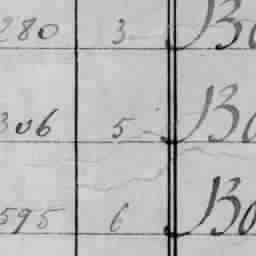 280 3 Bo
306 5 Bo
595 6 Bo